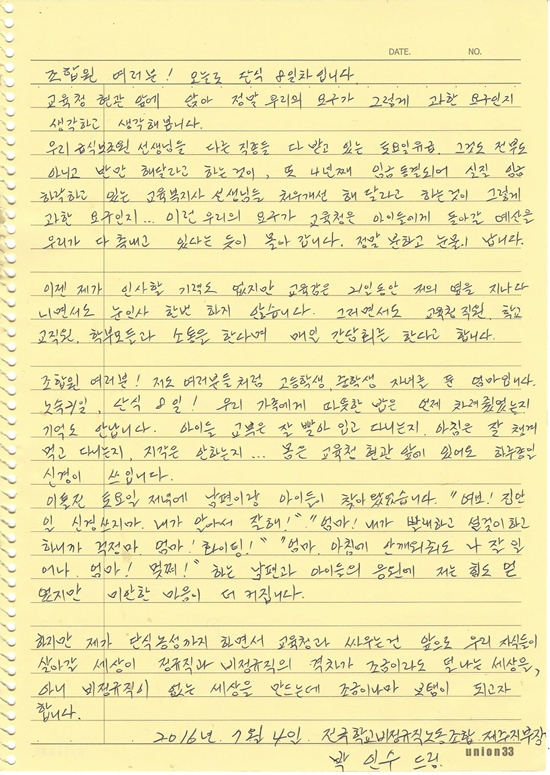 DATE. NO.
조합원 여러분! 오늘로 단식 8일차입니다
교육청 현관 앞에 앉아 정말 우리의 요구가 그렇게 과한 요구인지
생각하고 생각해봅니다.
우리 급식보조원 선생님들 다른 직종들 다 받고 있는 토요일유급, 그것도 전부도
아니고 반만 해달라고 하는것이, 또 4년째 임금동결되어 실질 임금
하락하고 있는 교육복지사 선생님들 처우개선 해 달라고 하는것이 그렇게
과한 요구인지... 이런 우리의 요구가 교육청은 아이들에게 돌아갈 예산을
우리가 다 축내고 있다는 듯이 몰아 갑니다. 정말 분하고 눈물이 납니다.
이젠 제가 인사할 기력도 없지만 교육감은 21일동안 저의 옆을 지나다
니면서도 눈인사 한번 하지 않습니다. 그러면서도 교육청 직원, 학교
교직원, 학부모들과 소통을 한다며 매일 간담회를 한다고 합니다.
조합원 여러분! 저도 여러분들처럼 고등학생, 중학생 자녀를 둔 엄마입니다.
노숙21일, 단식 8일! 우리 가족에게 따뜻한 밥은 언제 차려줬었는지
기억도 안납니다. 아이들 교복은 잘 빨아 입고 다니는지, 아침은 잘 챙겨
먹고 다니는지, 지각은 안하는지... 몸은 교육청 현관 앞에 있어도 하루종일
신경이 쓰입니다.
이틀전 토요일 저녁에 남편이랑 아이들이 찾아 왔었습니다. "여보! 집안
일 신경쓰지마. 내가 알아서 잘해!" "엄마! 내가 빨래하고 설겆이하고
하니까 걱정마. 엄마! 화이팅!" "엄마. 아침에 안깨워줘도 나 잘 일
어나. 엄마! 멋쪄!" 하는 남편과 아이들의 응원에 저는 힘도 얻
었지만 미안한 마음이 더 커집니다.
하지만 제가 단식농성까지 하면서 교육청과 싸우는건 앞으로 우리 자식들이
살아갈 세상이 정규직과 비정규직의 격차가 조금이라도 덜 나는 세상을,
아니 비정규직이 없는 세상을 만드는데 조금이나마 보탬이 되고자
합니다.
2016년. 7월 4일. 전국학교비정규직노동조합 제주지부장
박인수 드림.
union33